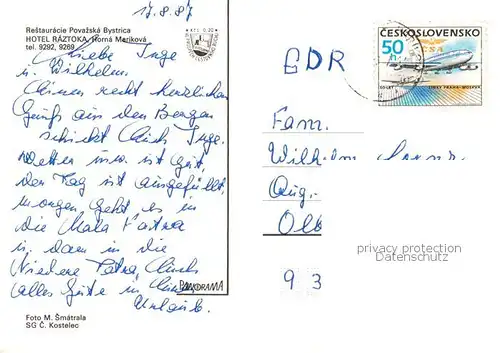 17.8.87
Reštaurácie Považská Bystrica
HOTEL RÁZTOKA, Horná Mariková
tel. 9292, 9269
Kčs 0,30
Liebe Inge
u. Wilhelm.
Einen recht herzlichen
Gruß aus den Bergen
schickt Euch Inge.
Wetter usw. ist gut,
der Tag ist ausgefüllt,
morgen geht es in
die Mala Fatra
u. dann in die
Niedere Tatra, Euch
alles Gute im
Urlaub.
PANORAMA
Foto M. Šmátrala
SG Č. Kostelec
ČESKOSLOVENSKO
50 h
ČSA
50 LET
LINKY PRAHA-MOSKVA
GDR
Fam.
Wilhelm
Aug.
Olb
93
privacy protection
Datenschutz